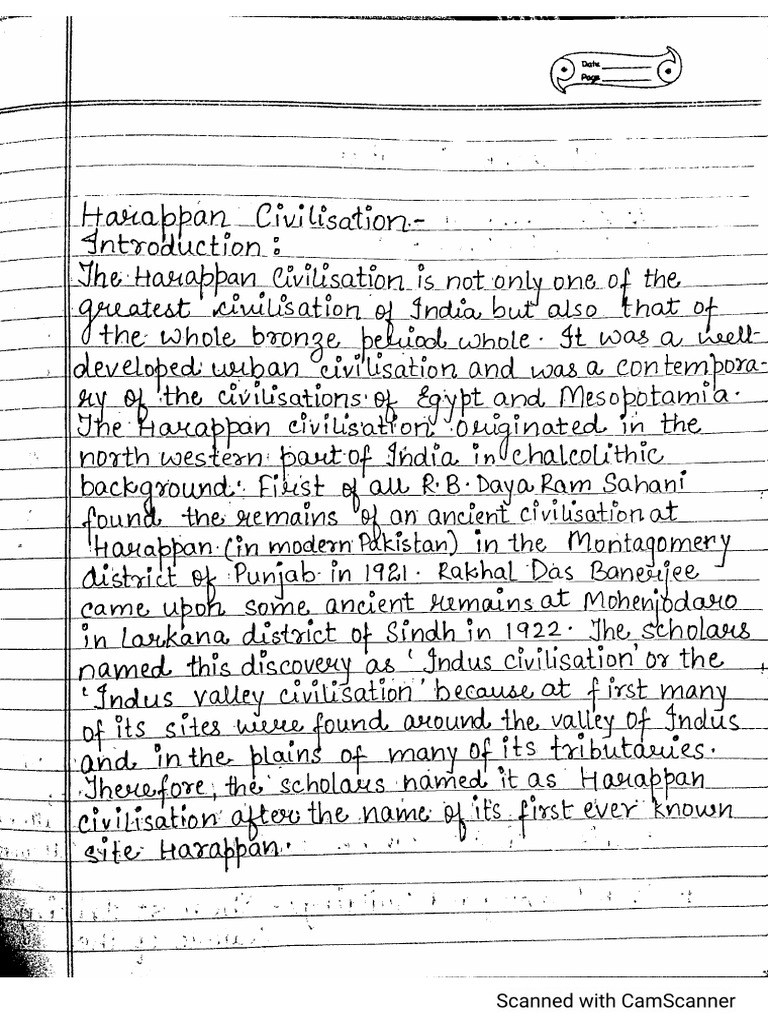 Date
Page
Harappan Civilisation-
Introduction:
The Harappan Civilisation is not only one of the
greatest civilisation of India but also that of
the whole bronze period whole. It was a well-
developed urban civilisation and was a contempora-
ry of the civilisations of Egypt and Mesopotamia.
The Harappan civilisation originated in the
north western part of India in chalcolithic
background. First of all R.B. Daya Ram Sahani
found the remains of an ancient civilisation at
Harappan (in modern Pakistan) in the Montagomery
district of Punjab in 1921. Rakhal Das Banerjee
came upon some ancient remains at Mohenjodaro
in Larkana district of Sindh in 1922. The scholars
named this discovery as 'Indus civilisation' or the
'Indus valley civilisation' because at first many
of its sites were found around the valley of Indus
and in the plains of many of its tributaries.
Therefore, the scholars named it as Harappan
civilisation after the name of its first ever known
site Harappan.
Scanned with CamScanner